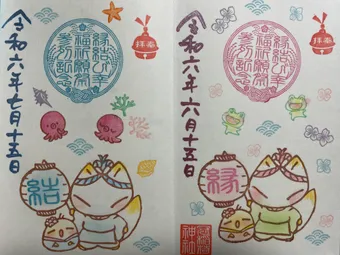 令和六年七月十五日
拝奉
縁結び幸
福祈願祭
参列記念
結
令和六年六月十五日
拝奉
縁結び幸
福祈願祭
参列記念
縁
神社